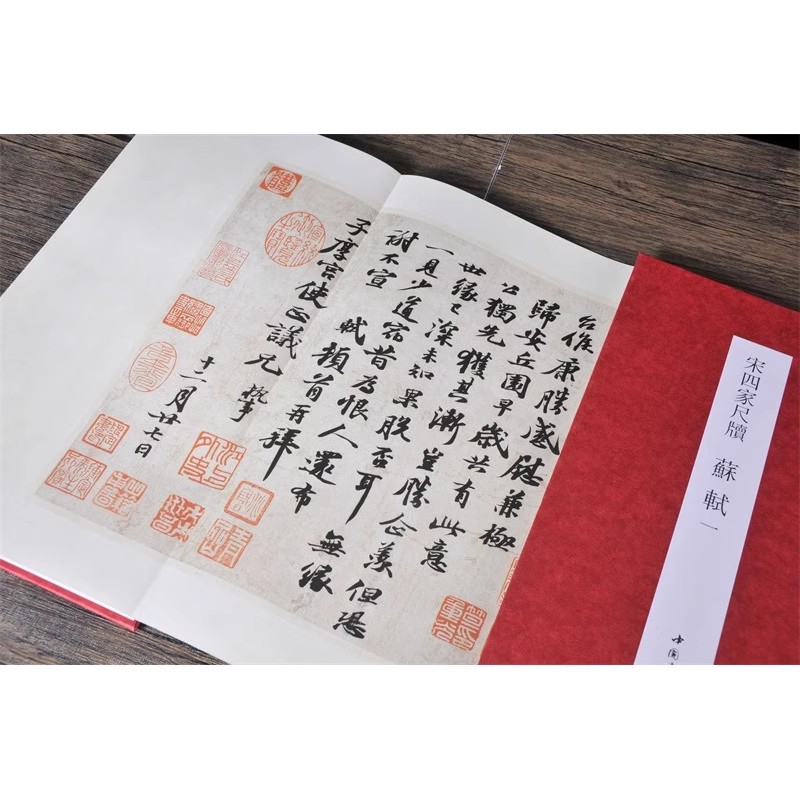 台候康勝感慰兼極
歸安丘園早歲共有此意
公獨先獲其漸豈勝企羨但恐
世緣已深未知果脫否耳無緣
一見少道宿昔為恨人還布
謝不宣 軾頓首再拜
子厚宮使正議兄執事
十二月廿七日
宋四家尺牘 蘇軾 一
中國